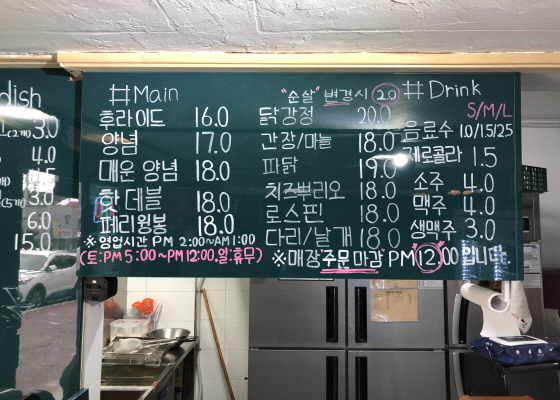 dish
3.0
4.0
4.5
3.0
6.0
15.0
#Main
후라이드 16.0
양념 17.0
매운 양념 18.0
핫데블 18.0
페리윙봉 18.0
※ 영업시간 PM 2:00~AM 1:00
(토:PM 5:00~PM 12:00, 일:휴무)
"순살" 변경시 2.0
닭강정 20.0
간장/마늘 18.0
파닭 19.0
치즈뿌리오 18.0
로스핀 18.0
다리/날개 18.0
※매장주문마감 PM 12:00입니다.
#Drink
S/M/L
음료수 1.0/1.5/2.5
제로콜라 1.5
소주 4.0
맥주 4.0
생맥주 3.0